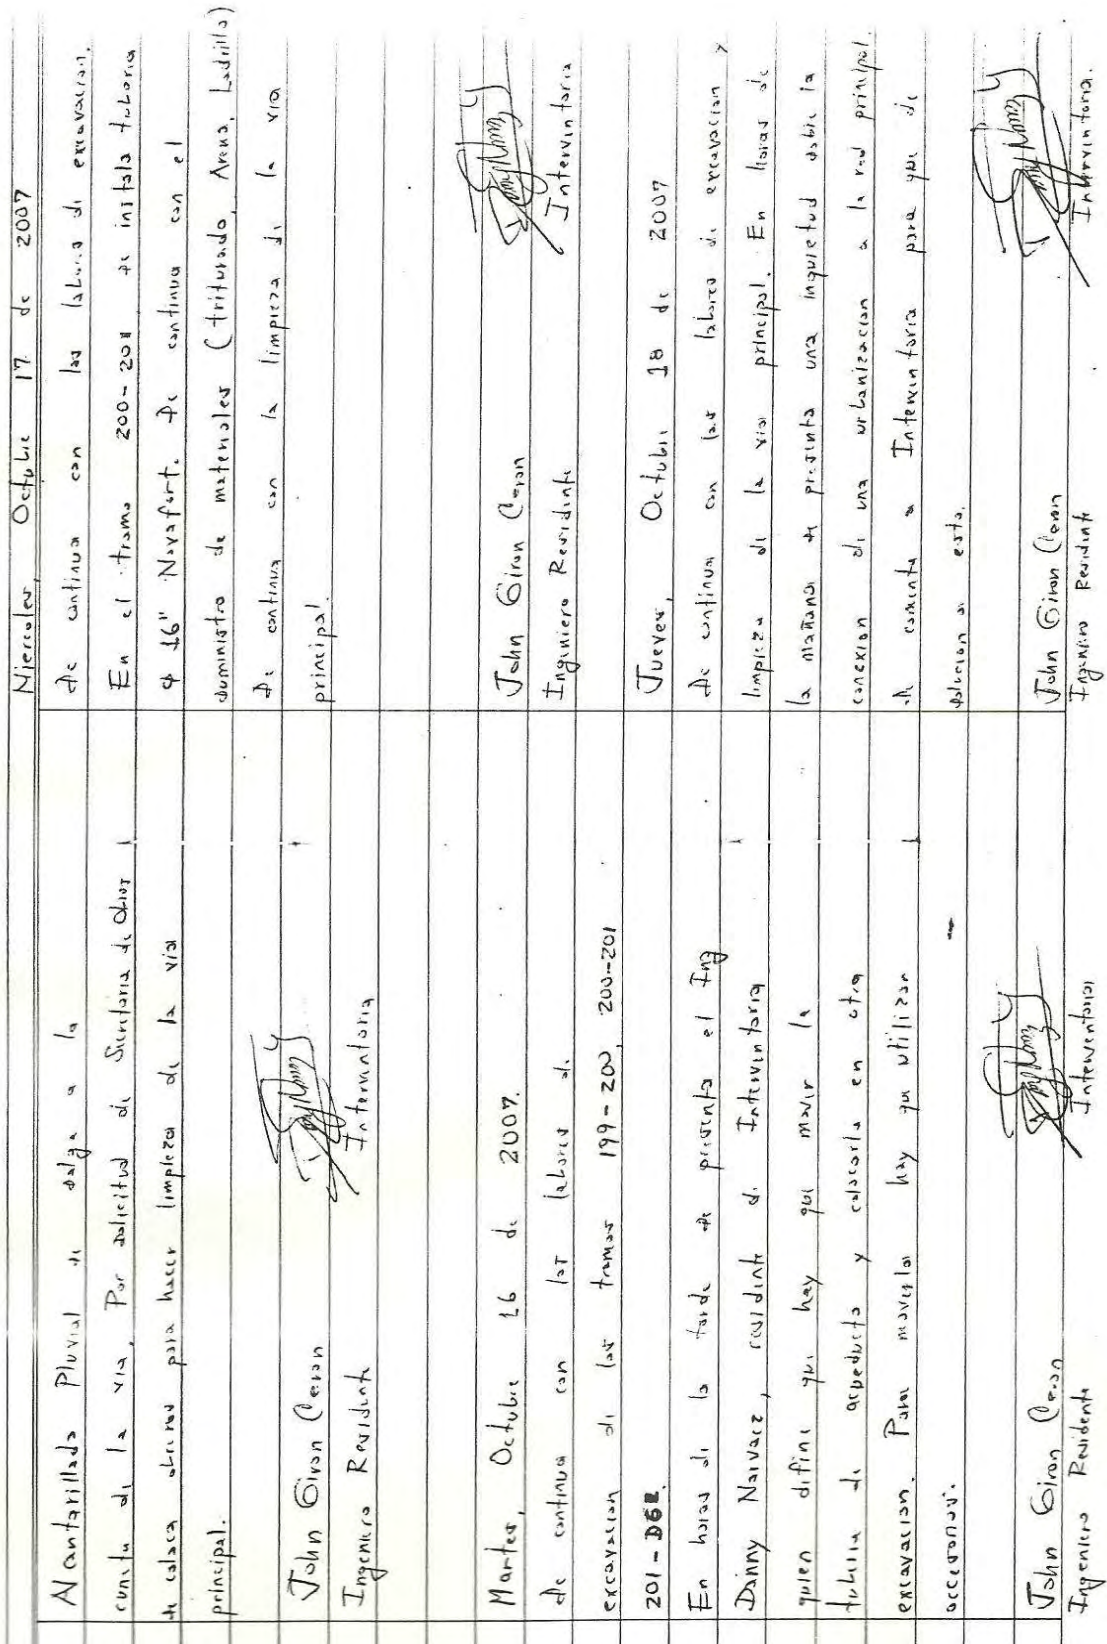 Alcantarillado Pluvial se salga a la
cuneta de la via, Por solicitud de Secretaria de Obras
se coloca obreros para hacer limpieza de la via
principal.
John Giron Ceron
Ingeniero Residente
Interventoria
Martes, Octubre 16 de 2007.
Se continua con las labores de
excavacion de los tramos 199-200, 200-201
201-
En horas de la tarde se presenta el Ing
Danny Narvaez, residente de Interventoria
quien define que hay que mover la
tuberia de acueducto y colocarla en otra
excavacion. Para moverla hay que utilizar
accesorios.
John Giron Ceron
Ingeniero Residente
Interventoria
Miercoles, Octubre 17 de 2007
Se continua con las labores de excavacion.
En el tramo 200-201 se instala tuberia
φ 16" Novafort. Se continua con el
suministro de materiales (triturado, Arena, Ladrillo)
Se continua con la limpieza de la via
principal.
John Giron Ceron
Ingeniero Residente
Interventoria
Jueves, Octubre 18 de 2007
Se continua con las labores de excavacion y
limpieza de la via principal. En horas de
la mañana se presenta una inquietud sobre la
conexion de una urbanizacion a la red principal.
Se comenta a Interventoria para que de
solucion a esto.
John Giron Ceron
Ingeniero Residente
Interventoria.